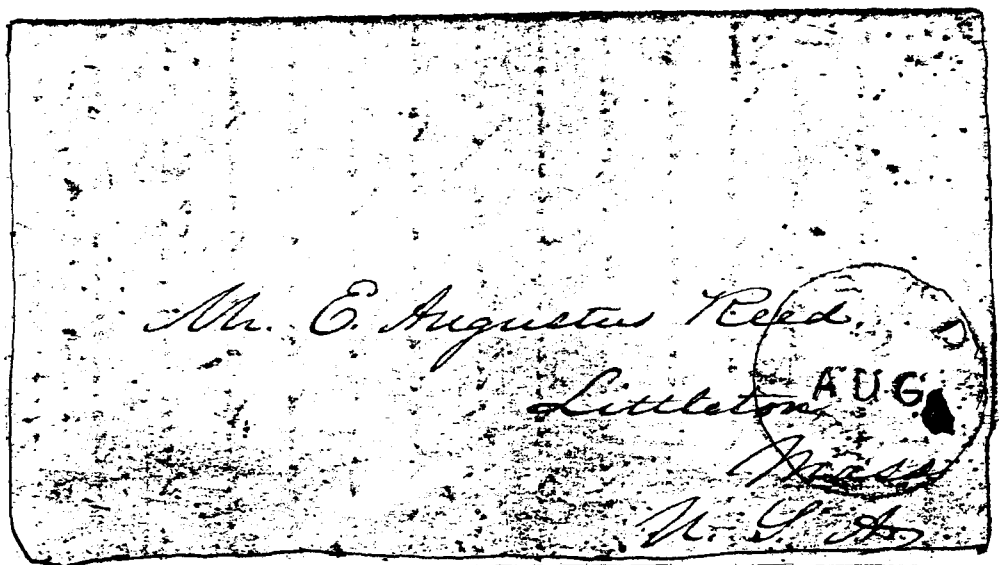 Mr. E. Augustus Reed,
Littleton,
AUG
Mass
U. S. A.